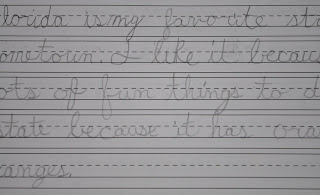 lorida is my favorite st
ometown. I like it becaus
ots of fun things to d
state because it has ora
anges.